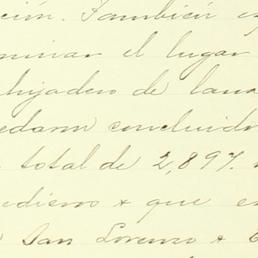 ción. También es
minar el lugar
hijadero de lana
edaron concluido
total de 2,897.
edieros + que es
San Lorenzo +